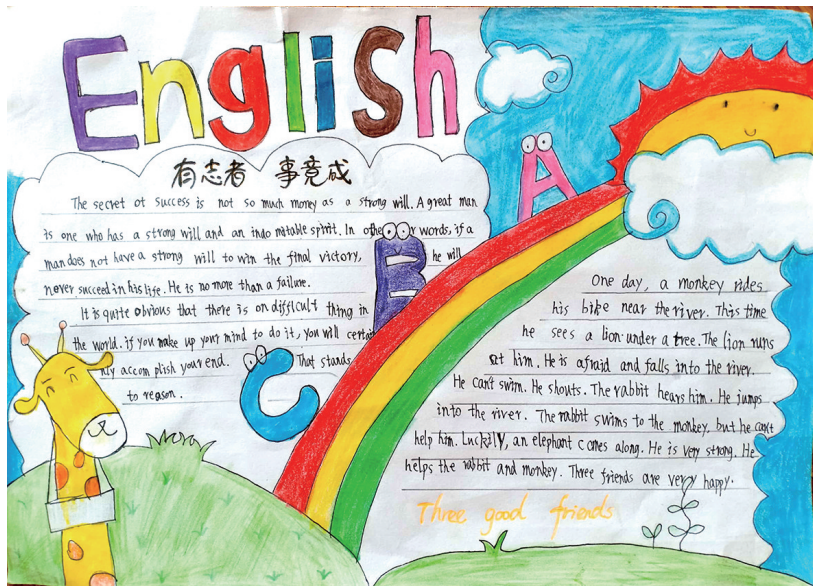 English
有志者 事竟成
The secret of success is not so much money as a strong will. A great man
is one who has a strong will and an indo mitable spirit. In other words, if a
man does not have a strong will to win the final victory, he will
never succeed in his life. He is no more than a failure.
It is quite obvious that there is on difficult thing in
the world. if you make up your mind to do it, you will certai
nly accom plish your end. That stands
to reason.
A
B
C
One day, a monkey rides
his bike near the river. This time
he sees a lion under a tree. The lion runs
at him. He is afraid and falls into the river.
He can't swim. He shouts. The rabbit hears him. He jumps
into the river. The rabbit swims to the monkey, but he can't
help him. Luckily, an elephant comes along. He is very strong. He
helps the rabbit and monkey. Three friends are very happy.
Three good friends